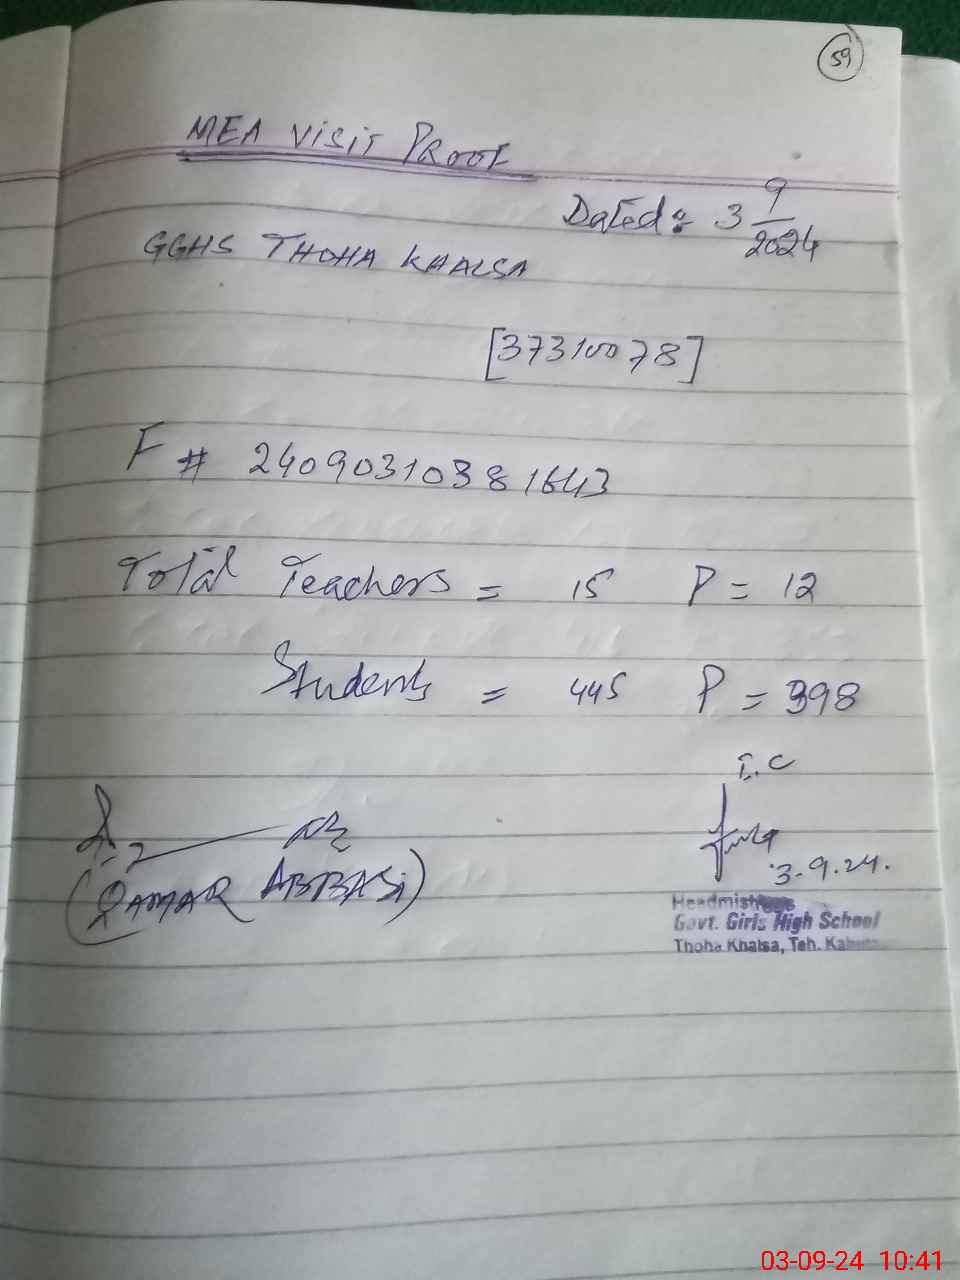 59
MEA VISIT PROOF
Dated: 3 9/2024
GGHS THOHA KHALSA
[37310078]
F # 24090310381643
Total Teachers = 15 P = 12
Students = 445 P = 398
I.C
3-9.24.
(QAMAR ABBASi)
Headmistress
Govt. Girls High School
Thoha Khalsa, Teh.
03-09-24 10:41